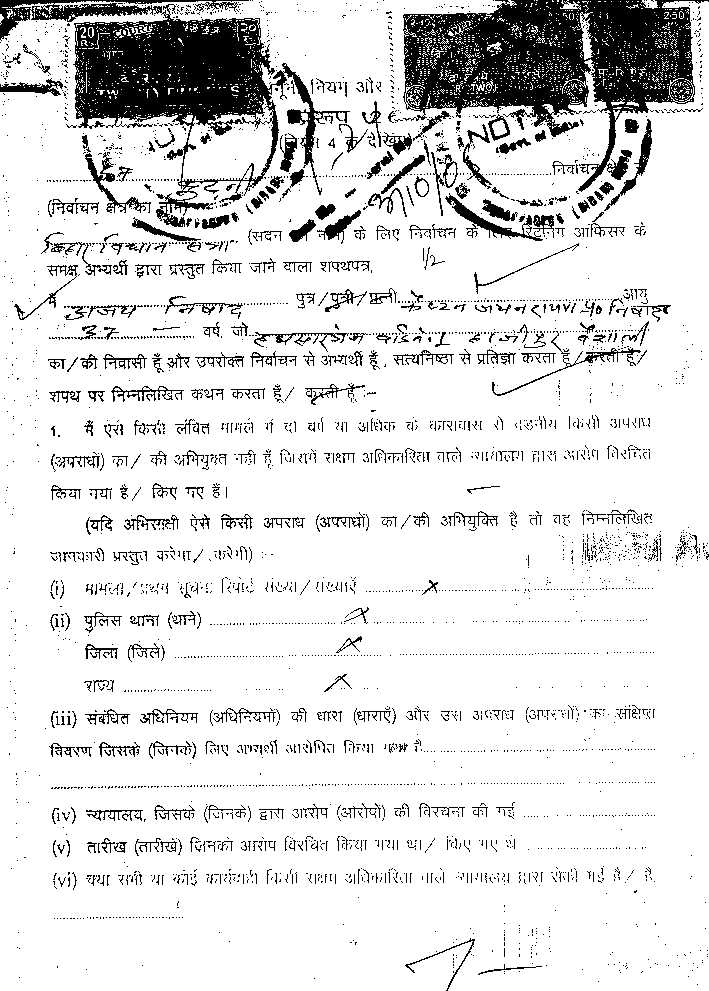 20
250
कानूनी नियम और
प्ररूप
(नियम 4 क देखिए)
NOT
कुढ़नी निर्वाचन क्षेत्र
(निर्वाचन क्षेत्र का नाम)
बिहार विधान सभा (सदन का नाम) के लिए निर्वाचन के लिए रिटर्निंग आफिसर के
समक्ष अभ्यर्थी द्वारा प्रस्तुत किया जाने वाला शपथपत्र,
मैं अजय निषाद पुत्र/पुत्री/पत्नी कैप्टन जयनारायण प्र० निषाद आयु
37 वर्ष, जो हाजीपुर वैशाली
का/की निवासी हूँ और उपरोक्त निर्वाचन से अभ्यर्थी हूँ, सत्यनिष्ठा से प्रतिज्ञा करता हूँ/करती हूँ/
शपथ पर निम्नलिखित कथन करता हूँ/ करती हूँ :-
1. मैं ऐसे किसी लंबित मामले में दो वर्ष या अधिक के कारावास से दंडनीय किसी अपराध
(अपराधों) का/ की अभियुक्त नहीं हूँ जिसमें सक्षम अधिकारिता वाले न्यायालय द्वारा आरोप विरचित
किया गया है/ किए गए हैं।
(यदि अभिसाक्षी ऐसे किसी अपराध (अपराधों) का/की अभियुक्ति है तो वह निम्नलिखित
जानकारी प्रस्तुत करेगा/ करेगी) :-
(i) मामला/प्रथम सूचना रिपोर्ट संख्या/संख्याएँ ..... x
(ii) पुलिस थाना (थाने) ..... x
जिला (जिले) ..... x
राज्य ..... x
(iii) संबंधित अधिनियम (अधिनियमों) की धारा (धाराएँ) और उस अपराध (अपराधों) का संक्षिप्त
विवरण जिसके (जिनके) लिए अभ्यर्थी आरोपित किया गया है.....
(iv) न्यायालय, जिसके (जिनके) द्वारा आरोप (आरोपों) की विरचना की गई .....
(v) तारीख (तारीखें) जिनको आरोप विरचित किया गया था/ किए गए थे .....
(vi) क्या सभी या कोई कार्यवाही किसी सक्षम अधिकारिता वाले न्यायालय द्वारा रोकी गई है/ हैं